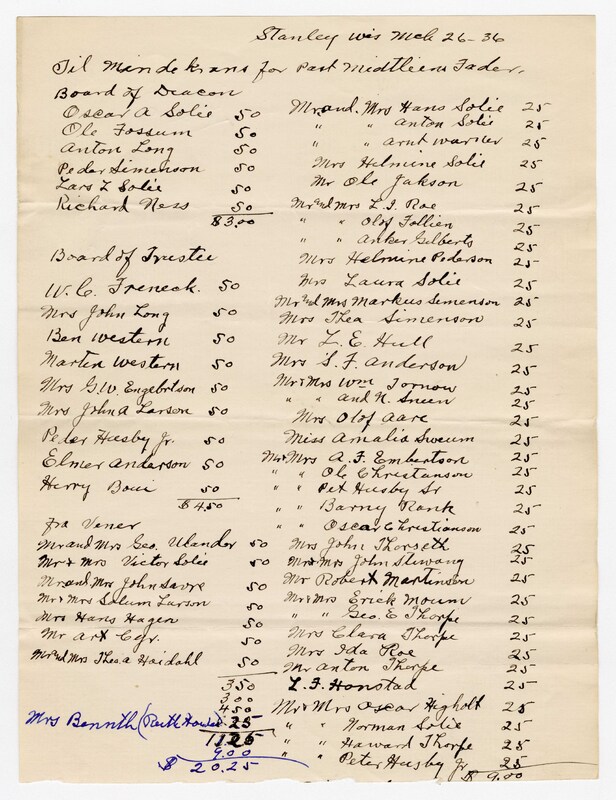 Stanley Wis Mch 26-36
Til Mindekrans for Past Midtliens Fader.
Board of Deacon
Oscar A Solie 50
Ole Fossum 50
Anton Long 50
Peder Simenson 50
Lars L Solie 50
Richard Ness 50
$3.00
Board of Trustee
W. C. Treneck. 50
Mrs John Long 50
Ben Western 50
Martin Western 50
Mrs G.W. Engebretson 50
Mrs John A Larson 50
Peter Husby Jr. 50
Elmer Anderson 50
Harry Boui 50
$4.50
fra Vener
Mr and Mrs Geo. Ulander 50
Mr & Mrs Victor Solie 50
Mr and Mrs John Savre 50
Mr & Mrs Solum Larson 50
Mrs Hans Hagen 50
Mr Art Cgr. 50
Mr and Mrs Theo. A Haidahl 50
3 50
3 00
4 50
Mrs Bennth (Ruth 25
11.25
9.00
$ 20.25
Mr. and. Mrs Hans Solie 25
" " Anton Solie 25
" " Arnt Warner 25
Mrs Helmine Solie 25
Mr Ole Jakson 25
Mr and Mrs L. I. Roe 25
" " Olof Follien 25
" " Anker Gilberts 25
Mrs Helmine Pederson 25
Mrs Laura Solie 25
Mr and Mrs Markus Simenson 25
Mrs Thea Simenson 25
Mr L. E. Hull 25
Mrs S. F. Anderson 25
Mr & Mrs Wm Tornow 25
" " and N. Sneen 25
Mrs Olof Aare 25
Miss Amalia Sweum 25
Mr & Mrs A. F. Embertson 25
" " Ole Christianson 25
" " Pet Husby Sr 25
" " Barny Rank 25
" " Oscar Christianson 25
Mrs John Thorseth 25
Mr & Mrs John Stuvang 25
Mr Robert Martinson 25
Mr & Mrs Erick Moum 25
" " Geo. E Thorpe 25
Mrs Clara Thorpe 25
Mrs Ida Roe 25
Mr Anton Thorpe 25
L. F. Hanstad 25
Mr & Mrs Oscar Higholt 25
" " Norman Solie 25
" " Haward Thorpe 25
" " Peter Husby Jr 25
$ 9.00